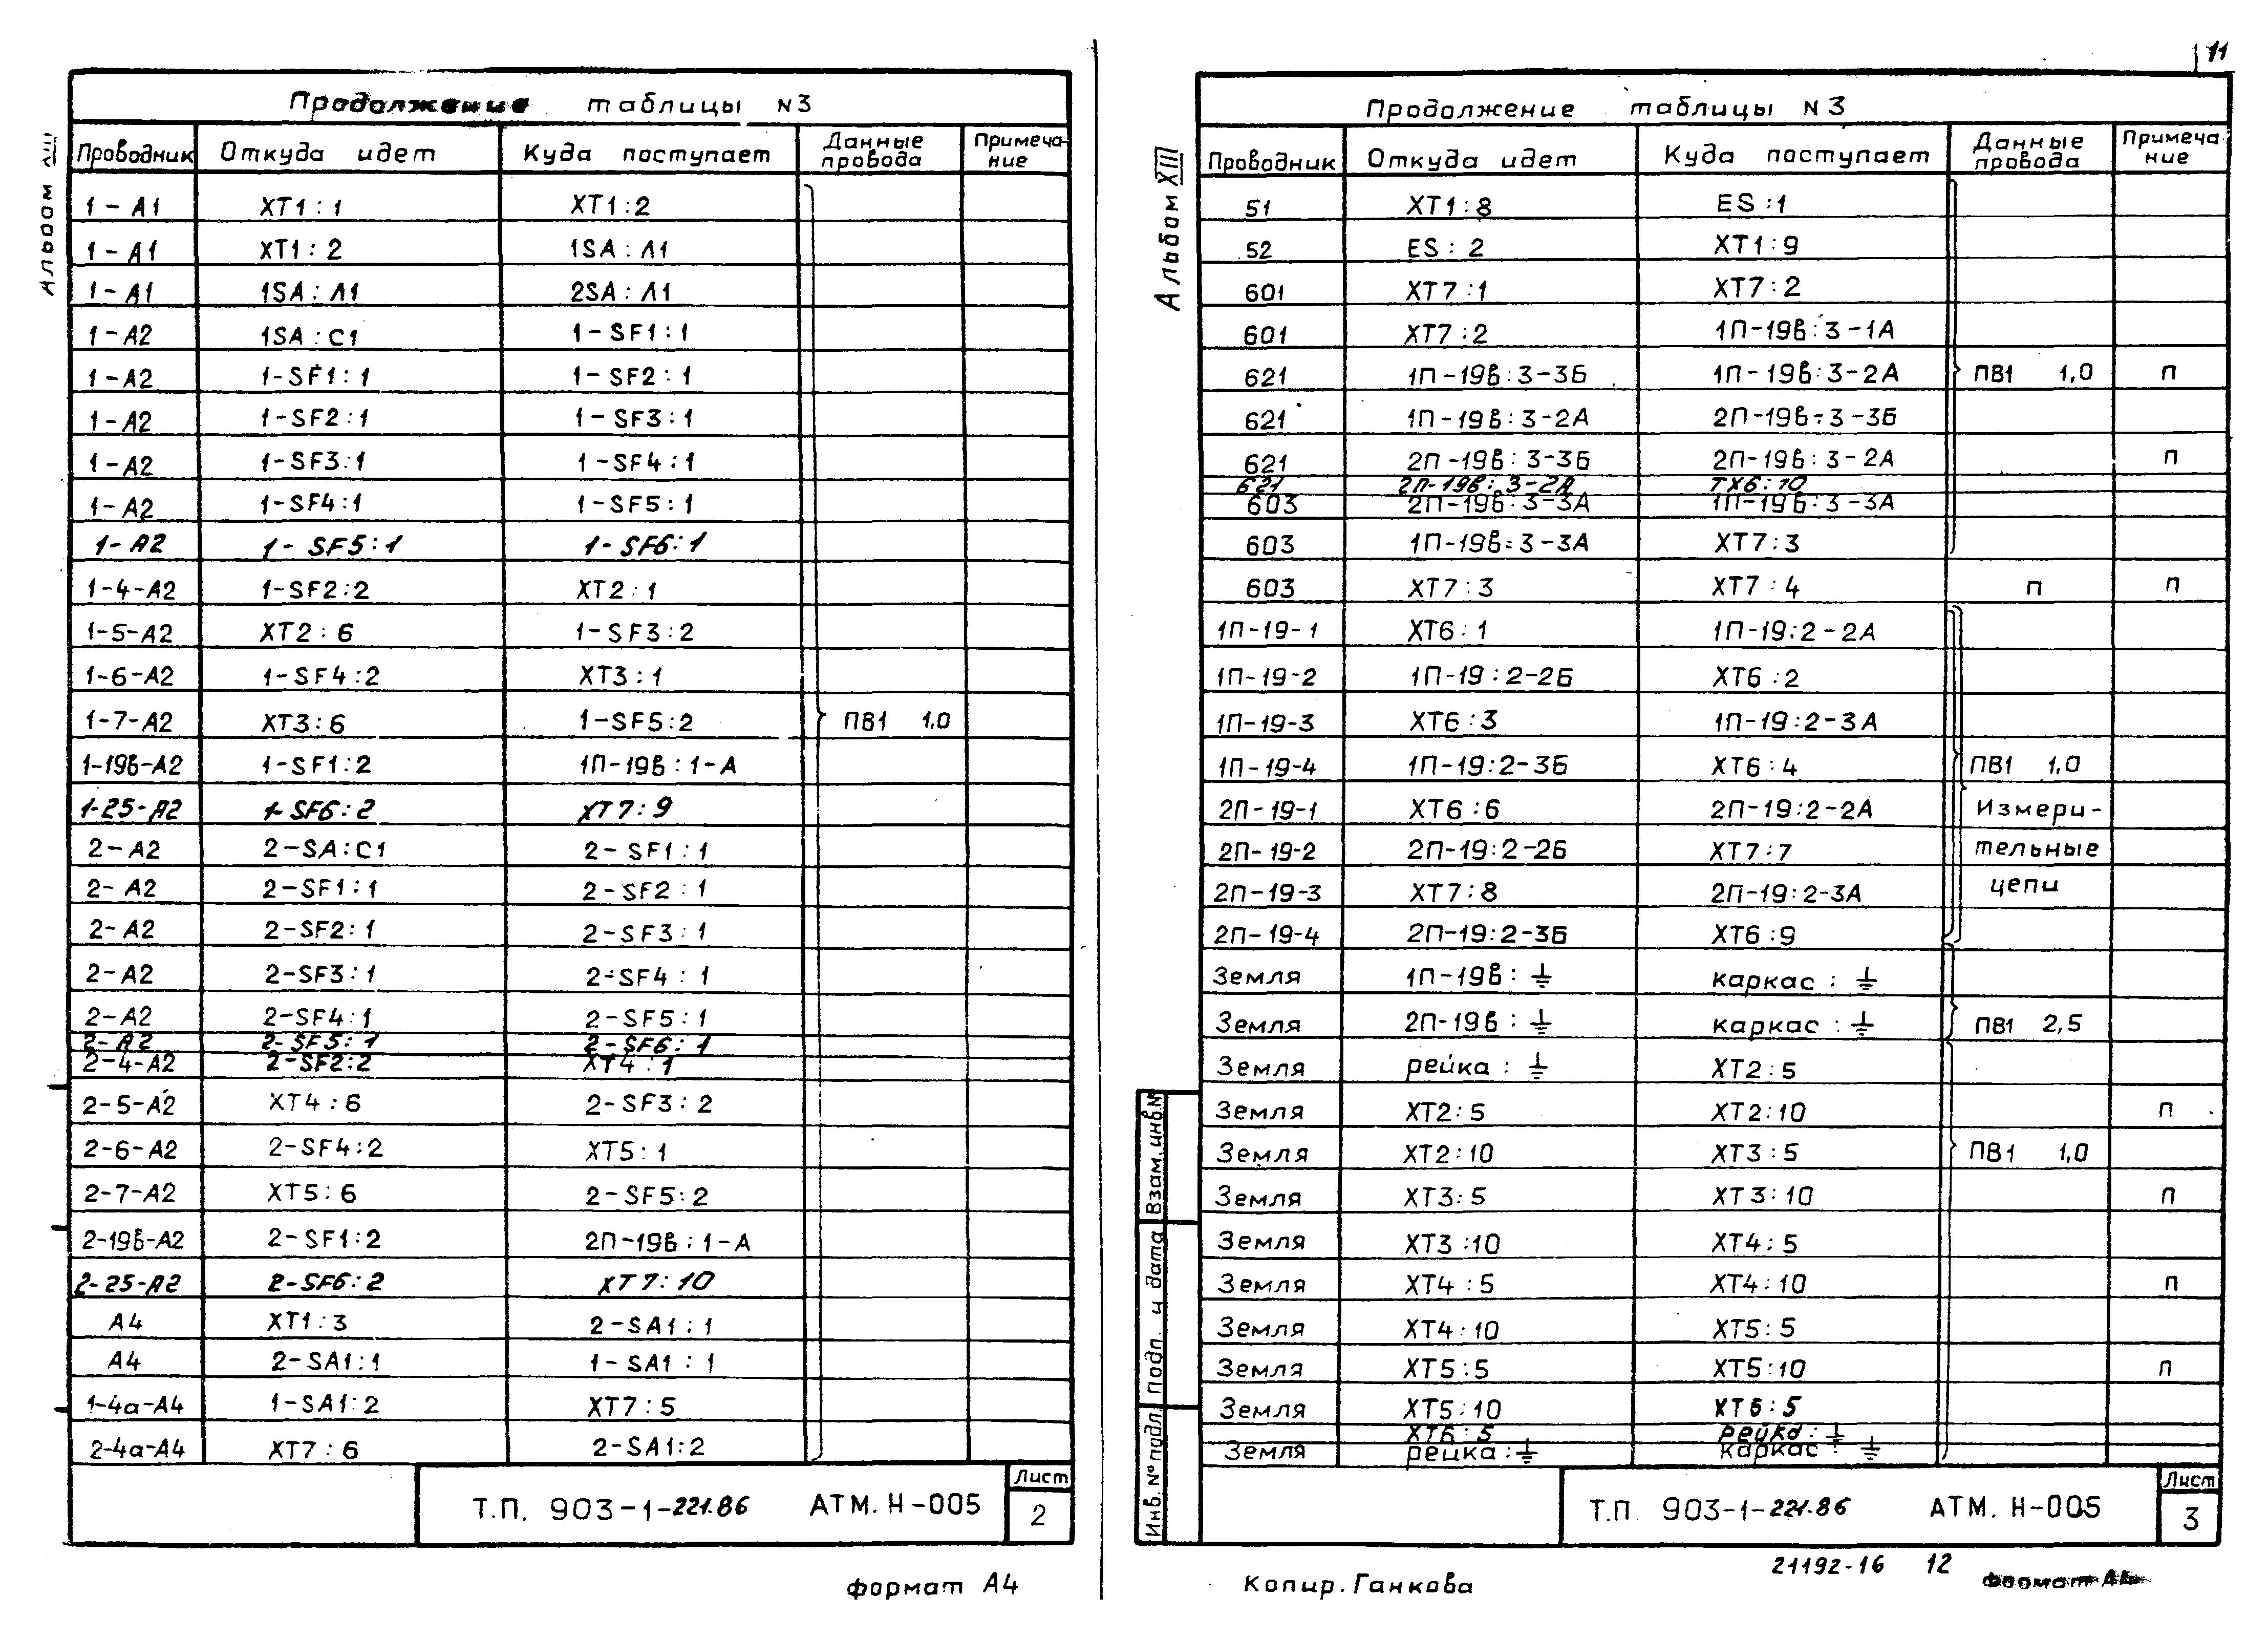 11
Альбом XIII
Продолжение таблицы N3
Проводник Откуда идет Куда поступает Данные провода Примечание
1-А1 ХТ1:1 ХТ1:2
1-А1 ХТ1:2 1SA:Л1
1-А1 1SA:Л1 2SA:Л1
1-А2 1SA:С1 1-SF1:1
1-А2 1-SF1:1 1-SF2:1
1-А2 1-SF2:1 1-SF3:1
1-А2 1-SF3:1 1-SF4:1
1-А2 1-SF4:1 1-SF5:1
1-А2 1-SF5:1 1-SF6:1
1-4-А2 1-SF2:2 ХТ2:1
1-5-А2 ХТ2:6 1-SF3:2
1-6-А2 1-SF4:2 ХТ3:1
1-7-А2 ХТ3:6 1-SF5:2 ПВ1 1,0
1-19в-А2 1-SF1:2 1П-19в:1-А
1-25-А2 1-SF6:2 ХТ7:9
2-А2 2-SA:С1 2-SF1:1
2-А2 2-SF1:1 2-SF2:1
2-А2 2-SF2:1 2-SF3:1
2-А2 2-SF3:1 2-SF4:1
2-А2 2-SF4:1 2-SF5:1
2-А2 2-SF5:1 2-SF6:1
2-4-А2 2-SF2:2 ХТ4:1
2-5-А2 ХТ4:6 2-SF3:2
2-6-А2 2-SF4:2 ХТ5:1
2-7-А2 ХТ5:6 2-SF5:2
2-19в-А2 2-SF1:2 2П-19в:1-А
2-25-А2 2-SF6:2 ХТ7:10
А4 ХТ1:3 2-SA1:1
А4 2-SA1:1 1-SA1:1
1-4а-А4 1-SA1:2 ХТ7:5
2-4а-А4 ХТ7:6 2-SA1:2
Т.П. 903-1-221.86 АТМ.Н-005
Лист
2
формат А4
Альбом XIII
Продолжение таблицы N3
Проводник Откуда идет Куда поступает Данные провода Примечание
51 ХТ1:8 ES:1
52 ES:2 ХТ1:9
601 ХТ7:1 ХТ7:2
601 ХТ7:2 1П-19в:3-1А
621 1П-19в:3-3Б 1П-19в:3-2А ПВ1 1,0 п
621 1П-19в:3-2А 2П-19в:3-3Б
621 2П-19в:3-3Б 2П-19в:3-2А п
621 2П-19в:3-2А ТХ6:10
603 2П-19в:3-3А 1П-19в:3-3А
603 1П-19в:3-3А ХТ7:3
603 ХТ7:3 ХТ7:4 п п
1П-19-1 ХТ6:1 1П-19:2-2А
1П-19-2 1П-19:2-2Б ХТ6:2
1П-19-3 ХТ6:3 1П-19:2-3А
1П-19-4 1П-19:2-3Б ХТ6:4 ПВ1 1,0
2П-19-1 ХТ6:6 2П-19:2-2А Измери-
2П-19-2 2П-19:2-2Б ХТ7:7 тельные
2П-19-3 ХТ7:8 2П-19:2-3А цепи
2П-19-4 2П-19:2-3Б ХТ6:9
Земля 1П-19в:⏚ каркас:⏚
Земля 2П-19в:⏚ каркас:⏚ ПВ1 2,5
Земля рейка:⏚ ХТ2:5
Земля ХТ2:5 ХТ2:10 п
Земля ХТ2:10 ХТ3:5 ПВ1 1,0
Земля ХТ3:5 ХТ3:10 п
Земля ХТ3:10 ХТ4:5
Земля ХТ4:5 ХТ4:10 п
Земля ХТ4:10 ХТ5:5
Земля ХТ5:5 ХТ5:10 п
Земля ХТ5:10 ХТ6:5
ХТ6:5 рейка:⏚
Земля рейка:⏚ каркас:⏚
Инв. № подл. Подп. и дата Взам. инв. №
Т.П 903-1-221.86 АТМ. Н-005
Лист
3
21192-16 12
Копир. Ганкова
формат